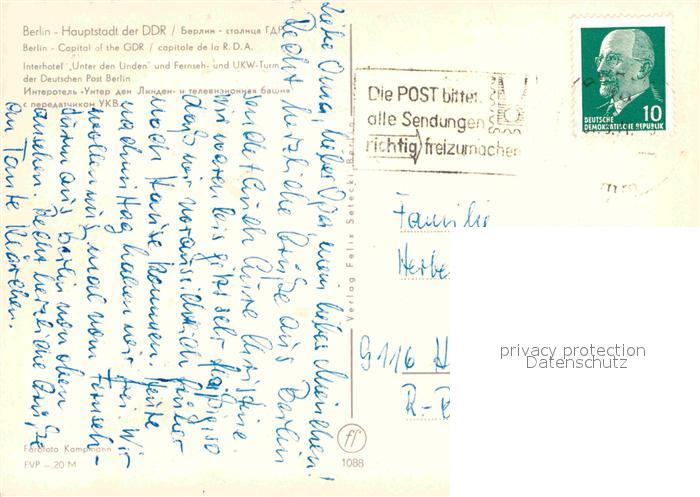 Berlin - Hauptstadt der DDR / Берлин - столица ГДР
Berlin - Capital of the GDR / capitale de la R.D.A.
Interhotel „Unter den Linden" und Fernseh- und UKW-Turm
der Deutschen Post Berlin
Интеротель «Унтер ден Линден» и телевизионная башня
с передатчиком УКВ
Liebe Oma, lieber Opa, mein liebes Mariechen!
Recht herzliche Grüße aus Berlin
sendet Euch Eure Christine.
Wir waren bis jetzt sehr fleißig, so
daß wir voraussichtlich früher
nach Hause kommen. Heute
nachmittag haben wir frei. Wir
wollen uns mal vom Fernseh-
turm aus Berlin von oben
ansehen. Recht herzliche Grüße
an Tante Klärchen.
Die POST bittet,
alle Sendungen
richtig freizumachen
DEUTSCHE
DEMOKRATISCHE REPUBLIK
10
Familie
Herbe
9116 H
R.-B
Verlag Felix Setecki, Berlin
Farbfoto Kampmann
EVP -.20 M
ff
1088
privacy protection
Datenschutz